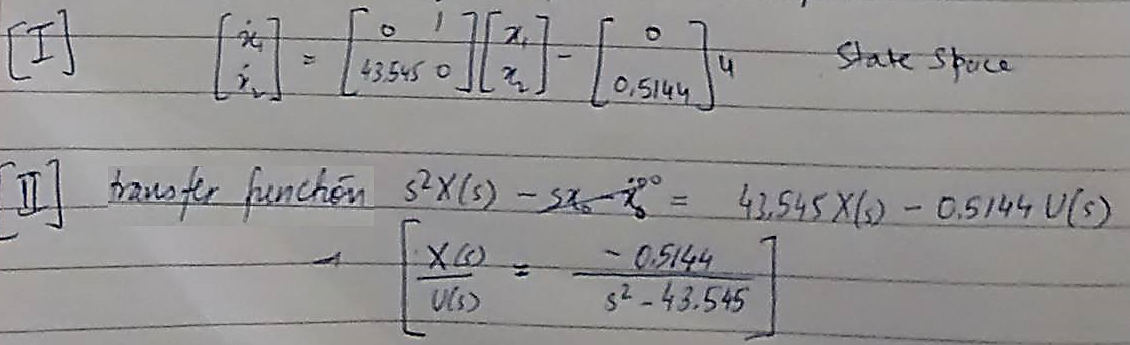 [I] [ẋ₁ ẋ₂] = [0 1 43.545 0] [x₁ x₂] - [0 0.5144] u State Space
[II] transfer function s²X(s) - sx₀ - ẋ₀ = 43.545 X(s) - 0.5144 U(s)
→ [X(s)/U(s) = -0.5144/s² - 43.545]